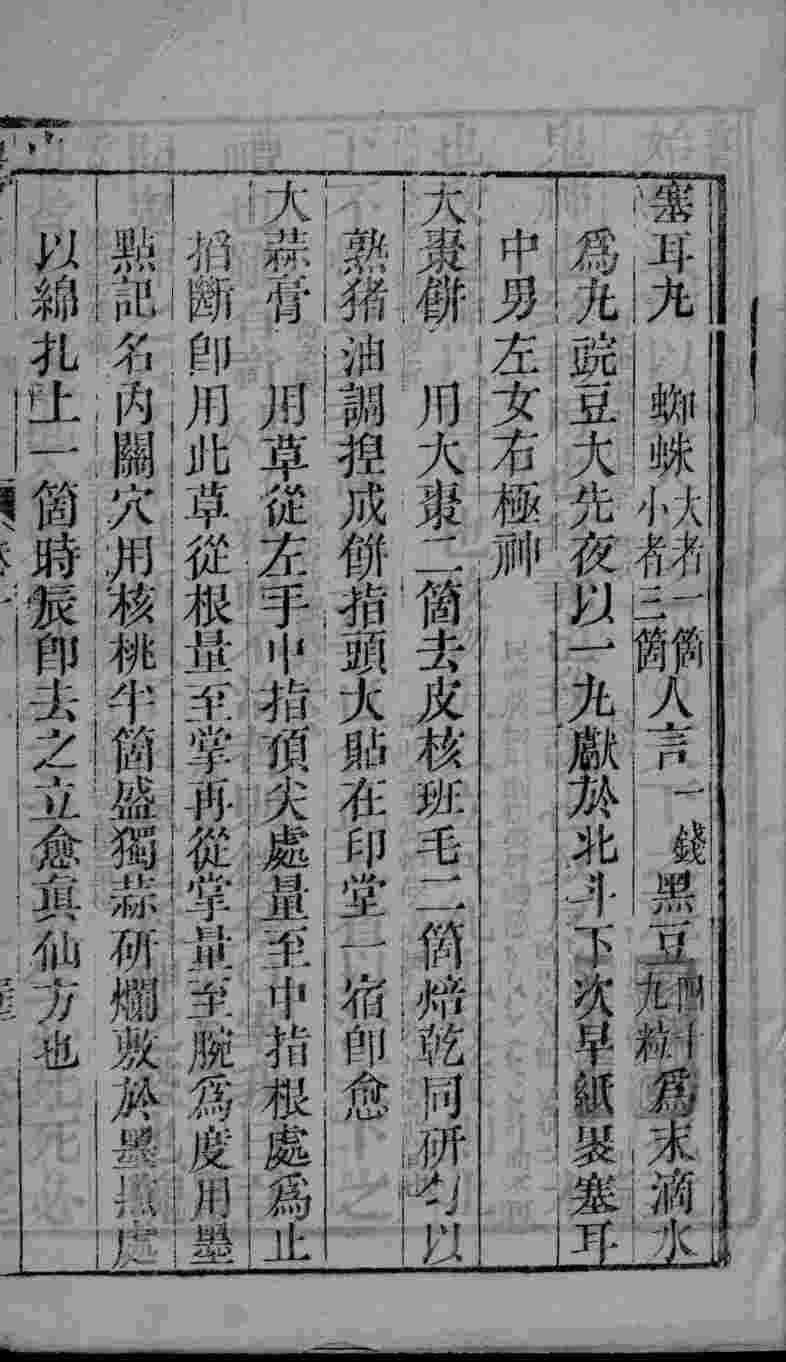 塞耳丸　蜘蛛大者一箇小者三箇人言一錢黑豆四十九粒為末滴水
為丸豌豆大先夜以一丸獻於北斗下次早紙裹塞耳
中男左女右極神
大棗餅　用大棗二箇去皮核班毛二箇焙乾同研勻以
熟猪油調揑成餅指頭大貼在印堂一宿卽愈
大蒜膏　用草從左手中指頂尖處量至中指根處爲止
搯斷卽用此草從根量至掌再從掌量至腕爲度用墨
點記名內關穴用核桃半箇盛獨蒜研爛敷於墨㸃處
以綿扎上一箇時辰卽去之立愈眞仙方也